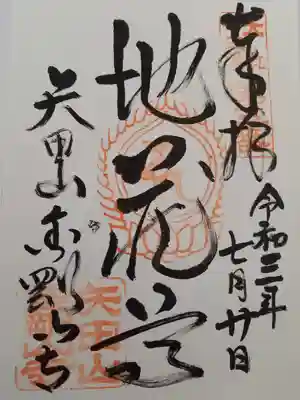 奉拝
令和三年
七月廿日
地蔵尊
矢田山金剛山寺
矢田山